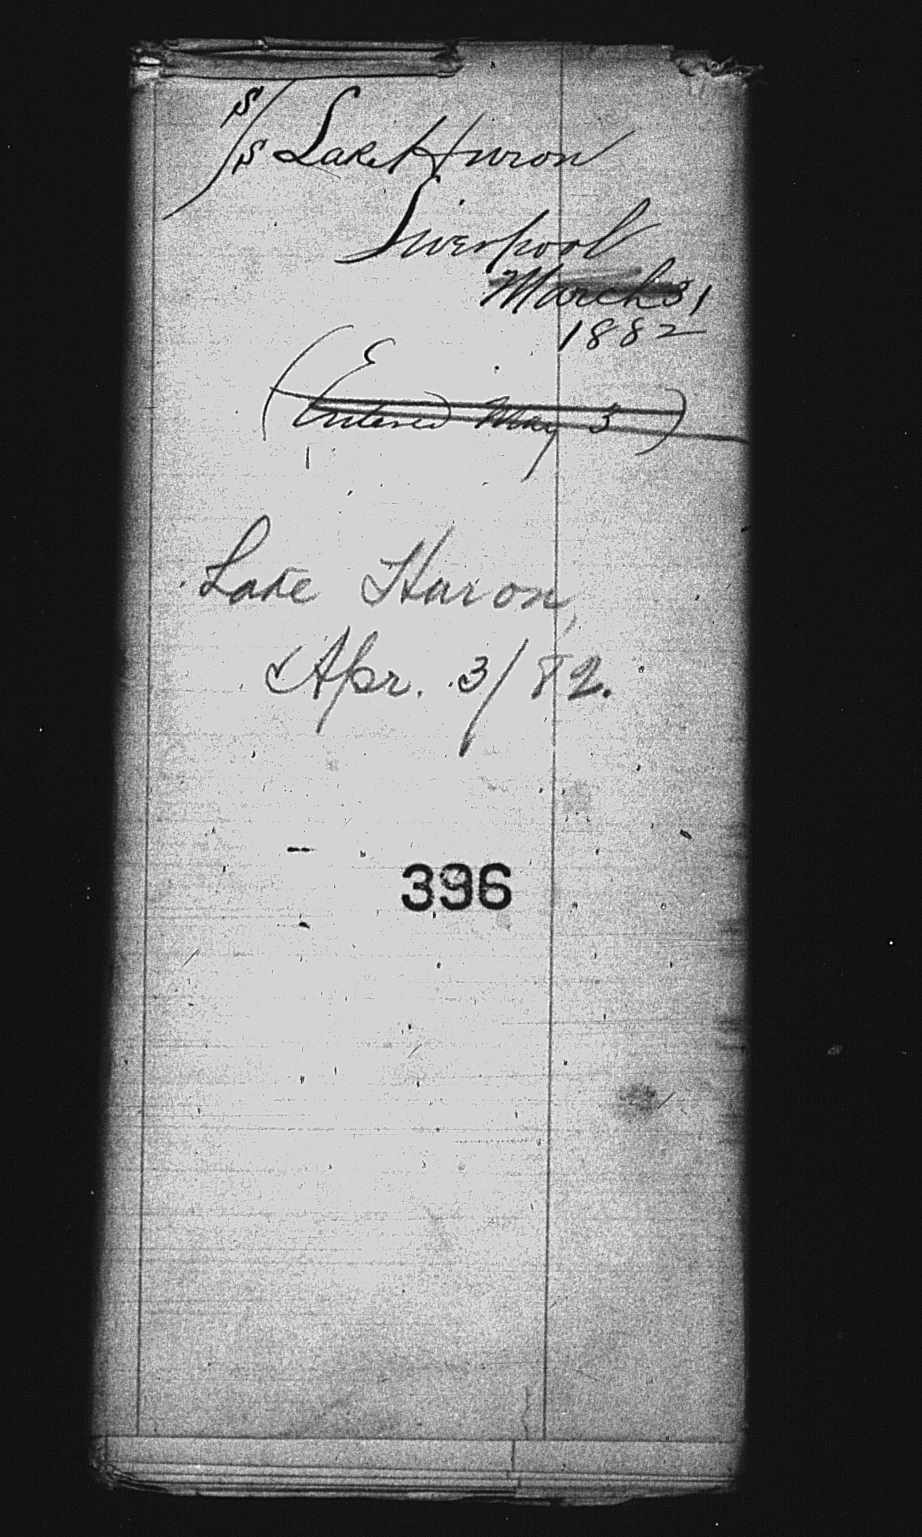 S/S Lake Huron
Liverpool
March 31
1882
(Entered May 3)
Lake Huron,
Apr. 3/82.
396